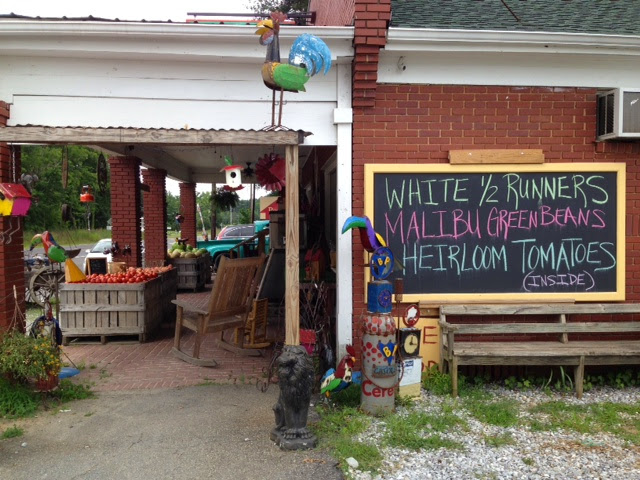 WHITE 1/2 RUNNERS
MALIBU GREENBEANS
HEIRLOOM TOMATOES
(INSIDE)